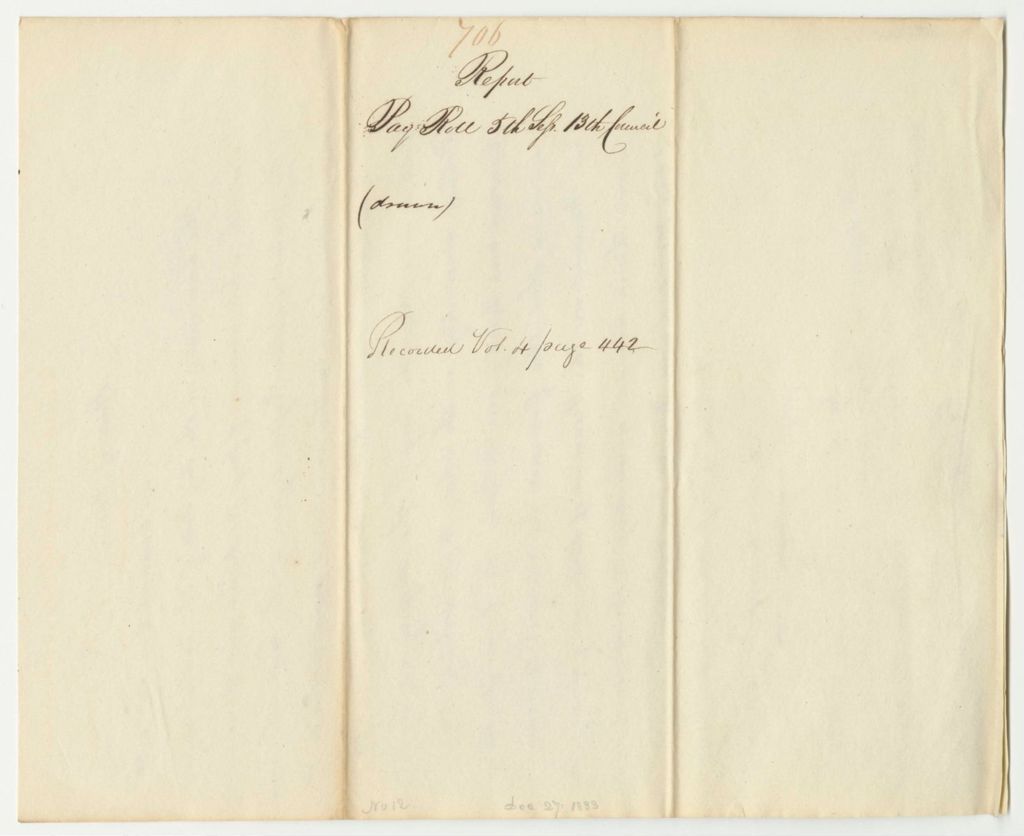 706
Report
Pay Roll 5th Sess. 13th Council
(drawn)
Recorded Vol. 4 page 442
No 12 Dec 27. 1833